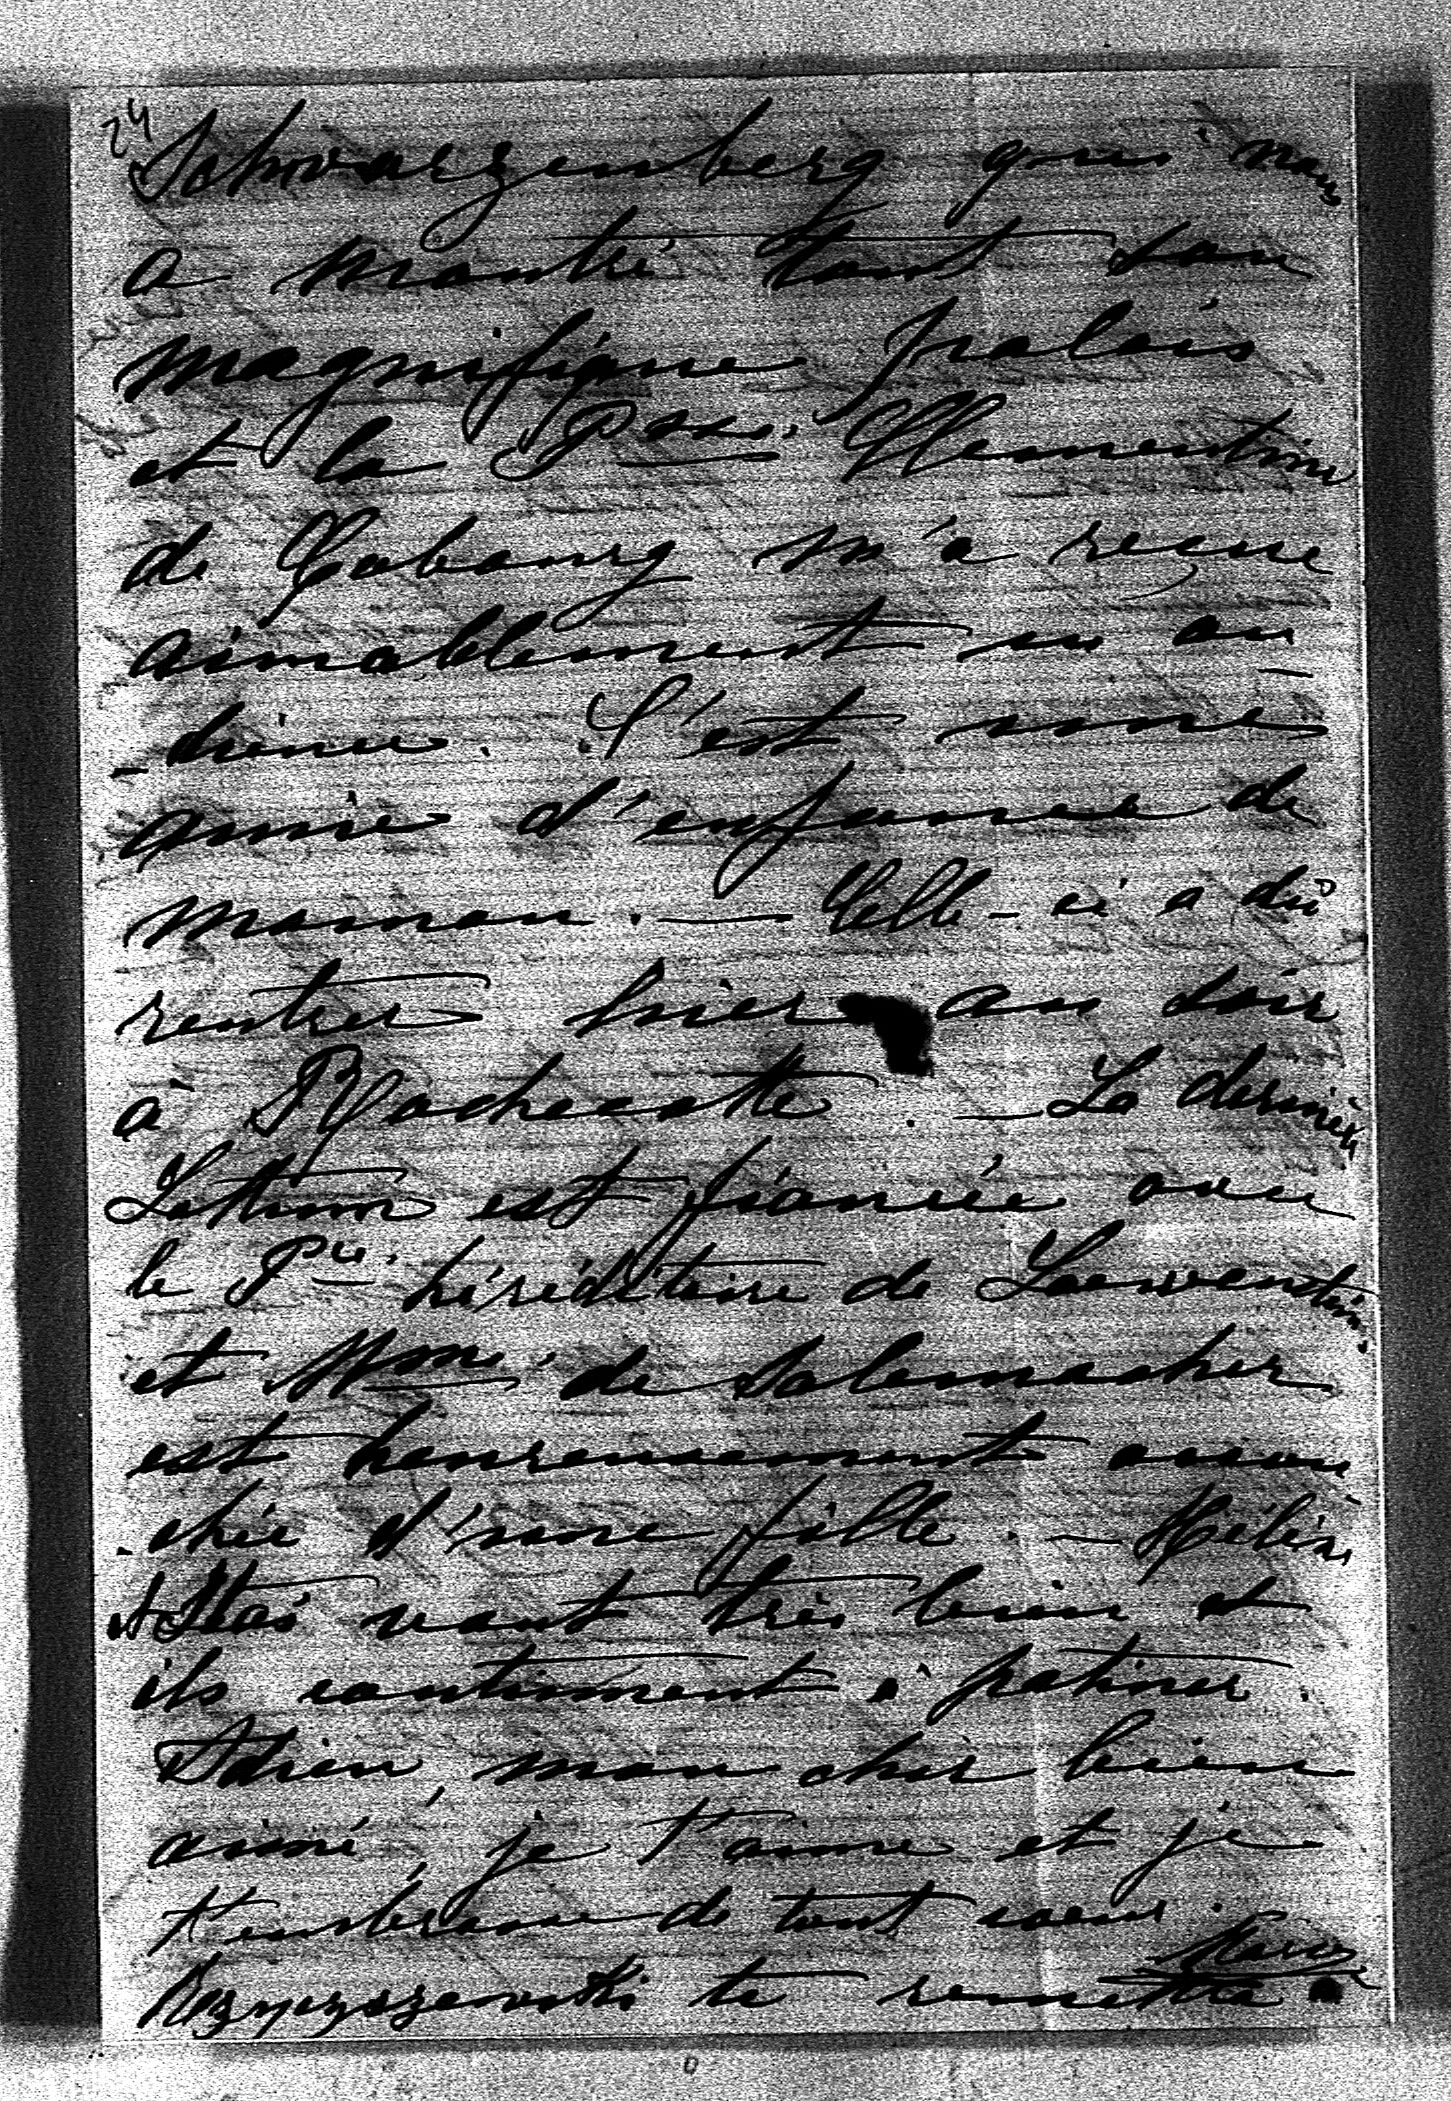 24
Schwarzenberg qui nous
a montré tout son
magnifique palais
et la Psse. Clementine
de Cobourg m'a reçue
aimablement en au
-dience. C'est une
amie d'enfance de
maman. — Celle-ci a dû
rentrer hier au soir
à Rochecotte. — La dernière
est fiancée avec
le Pce. héréditaire de Loewenstein.
et Mme. de Salemacher
est heureusement accou
-chée d'une fille. — Hélène
et Stas vont très bien et
ils continuent à patiner.
Adieu, mon cher bien
aimé, je t'aime et je
t'embrasse de tout coeur.
Marie
te remettra